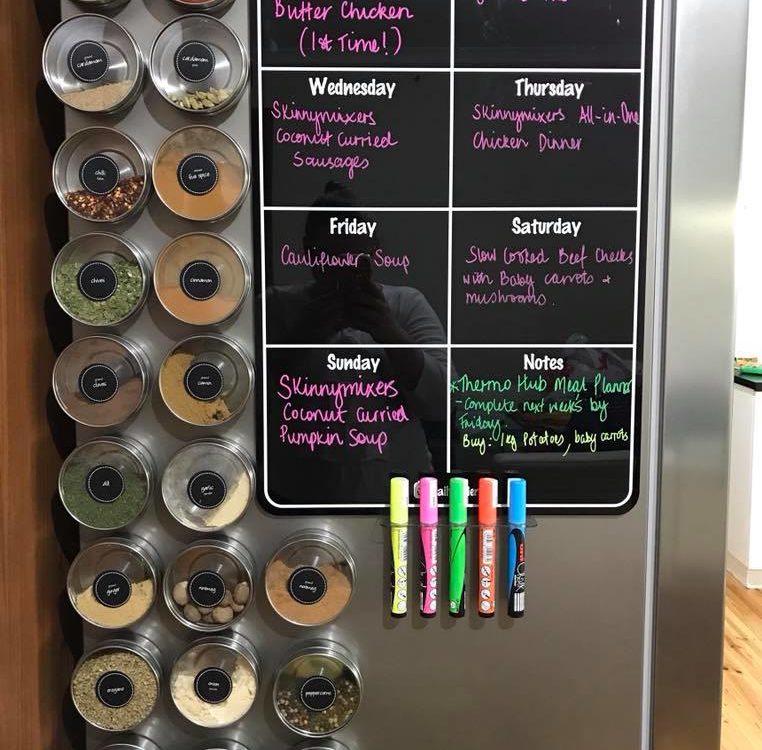 Butter Chicken
(1st Time!)
Wednesday
Skinnymixers
Coconut Curried
Sausages
Thursday
Skinnymixers All-in-One
Chicken Dinner
Friday
Cauliflower Soup
Saturday
Slow Cooked Beef Cheeks
with Baby carrots &
mushrooms.
Sunday
Skinnymixers
Coconut Curried
Pumpkin Soup
Notes
*Thermo Hub Meal Planner
- Complete next weeks by
Friday.
Buy: 1kg Potatoes, baby carrots
ground
cardamon
cardamon
chilli
five spice
chives
cinnamon
ground
cloves
ground
cumin
dill
garlic
powder
ground
ginger
nutmeg
ground
nutmeg
oregano
onion
peppercorns